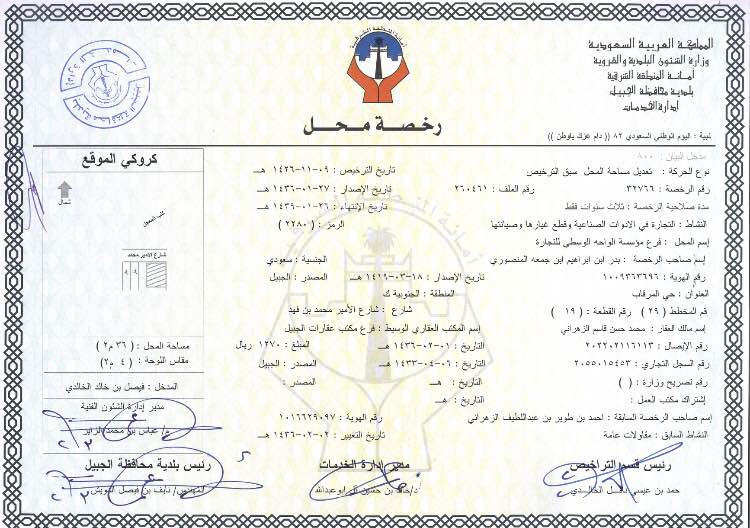 المملكة العربية السعودية
وزارة الشئون البلدية والقروية
أمانة المنطقة الشرقية
بلدية محافظة الجبيل
إدارة الخدمات
رخصة محل
تنبية : اليوم الوطني السعودي ٨٢ (( دام عزك ياوطن ))
مدخل البيان : ٨٠٠
نوع الحركة : تعديل مساحة المحل سبق الترخيص
تاريخ الترخيص : ٠٩-١١-١٤٢٦ هـ
رقم الرخصة : ٣٢٧٦٦
رقم الملف : ٢٦٠٤٦١
تاريخ الإصدار : ٢٧-٠١-١٤٣٦ هـ
مدة صلاحية الرخصة : ثلاث سنوات فقط
تاريخ الإنتهاء : ٢٦-٠١-١٤٣٩ هـ
النشاط : التجارة في الادوات الصناعية وقطع غيارها وصيانتها
الرمز : ( ٢٢٨٠ )
إسم المحل : فرع مؤسسة الواحه الوسطى للتجارة
إسم صاحب الرخصة : بدر ابن ابراهيم ابن جمعه المنصوري
الجنسية : سعودي
رقم الهوية : ١٠٠٩٣٦٣٦٩٦
تاريخ الإصدار : ١٨-٠٣-١٤٢٩ هـ
المصدر : الجبيل
العنوان : حي المرقاب
المنطقة : الجنوبية ك
رقم المخطط ( ٢٩ ) رقم القطعة : ( ١٩ )
شارع : شارع الأمير محمد بن فهد
إسم مالك العقار : محمد حسن قاسم الزهراني
إسم المكتب العقاري الوسيط : فرع مكتب عقارات الجبيل
رقم الإيصال : ٢٠٢٢٠٢١١٦١١٣
التاريخ : ٠١-٠٢-١٤٣٦
المبلغ : ١٢٧٠ ريال
رقم السجل التجاري : ٢٠٥٥٠١٥٤٥٣
التاريخ : ٠٦-٠٤-١٤٣٣ هـ
المصدر : الجبيل
رقم تصريح وزارة : ( )
التاريخ : هـ
المصدر :
إشتراك مكتب العمل :
التاريخ : هـ
إسم صاحب الرخصة السابقة : احمد بن طوير بن عبداللطيف الزهراني
رقم الهوية : ١٠١٦٦٢٩٠٩٧
النشاط السابق : مقاولات عامة
تاريخ التغيير : ٠٢-٠٢-١٤٣٦ هـ
كروكي الموقع
شمال
شارع الامير محمد
مساحة المحل : ( ٣٦ م٢ )
مقاس اللوحة : ( ٤ م٢ )
المدخل : فيصل بن خالد الخالدي
مدير إدارة الشئون الفنية
م/ عباس بن محمد الزاير
رئيس قسم التراخيص
حمد بن عيسى الخالدي
مدير إدارة الخدمات
د/خالد بن حسين ال ابوعبدالله
رئيس بلدية محافظة الجبيل
المهندس/ نايف بن فيصل الدويش